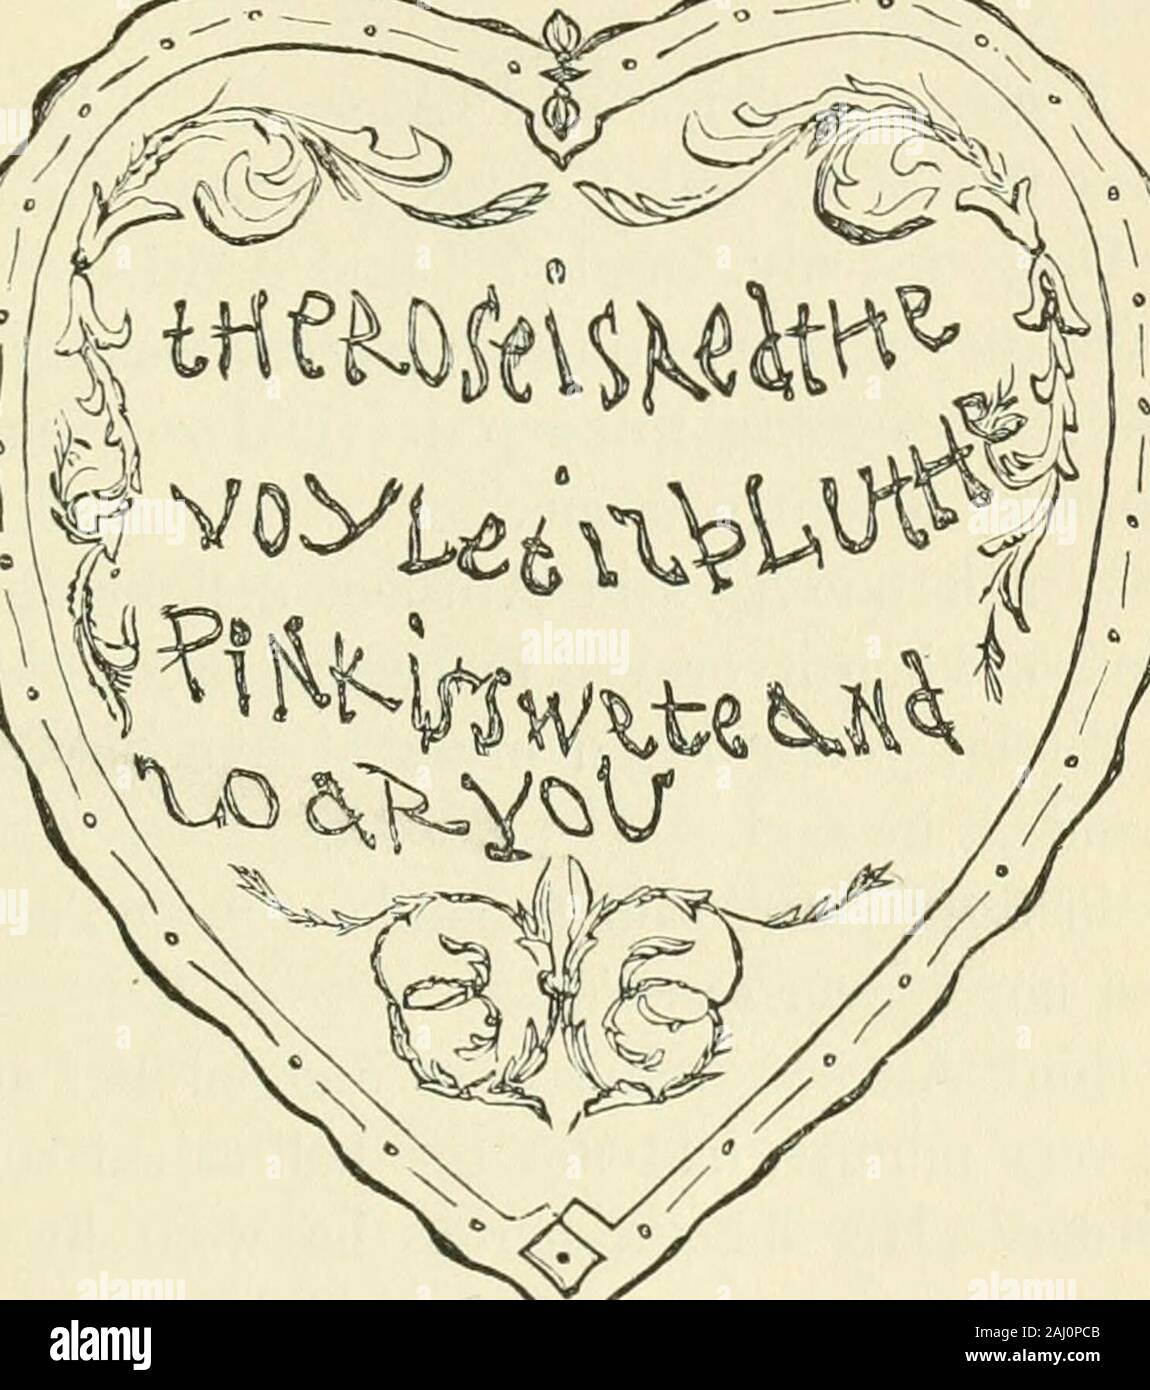 tHeROSeiSRedtHe
VOYLetizbLUtHe
PiNKissweteaNd
SOaRYOU
alamy
Image ID: 2AJ0PCB
www.alamy.com